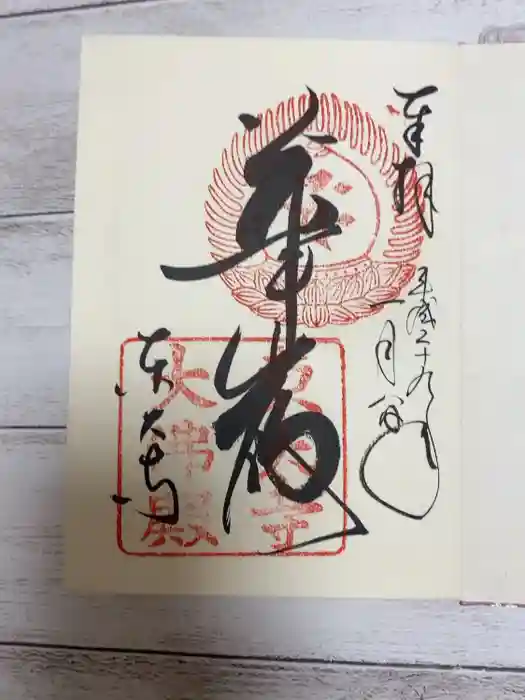 奉拝
平成二十九年
一月八日
華厳
東大寺
東大寺
大佛殿